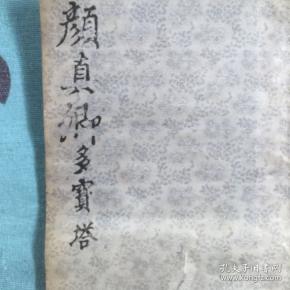 顏真卿多寶塔
孔夫子旧书网